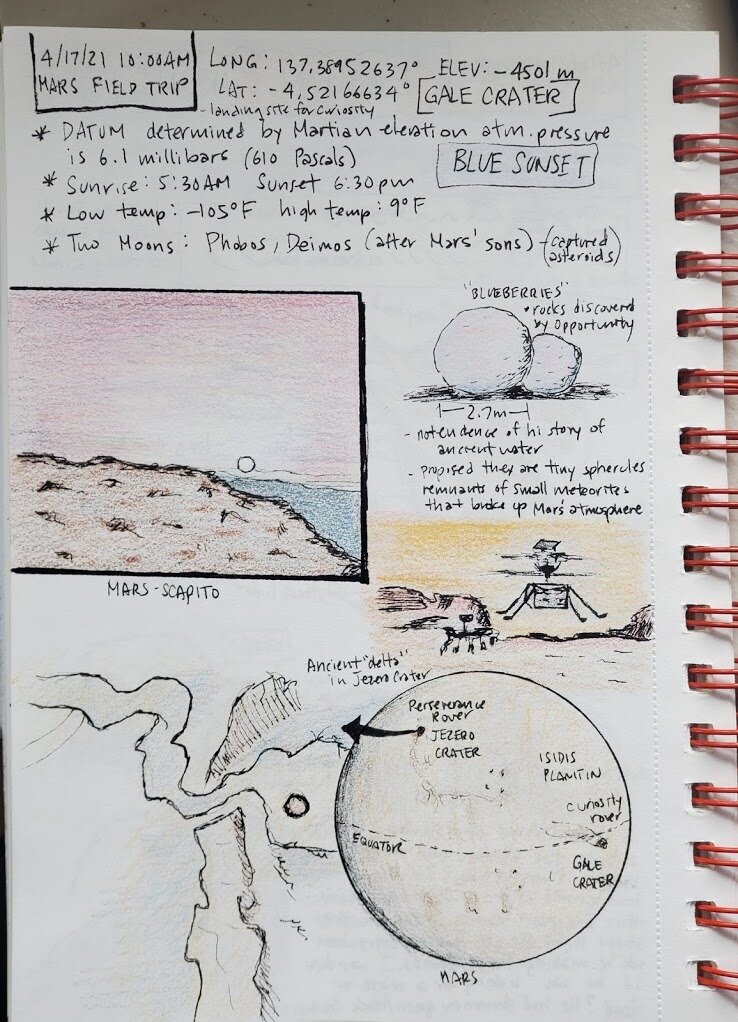 4/17/21 10:00AM
MARS FIELD TRIP
LONG: 137.38952637° ELEV: -4501 m
LAT: -4.52166634° GALE CRATER
- landing site for Curiosity
* DATUM determined by Martian elevation atm. pressure
is 6.1 millibars (610 Pascals)
BLUE SUNSET
* Sunrise: 5:30AM Sunset 6:30pm
* Low temp: -105°F high temp: 9°F
* Two Moons: Phobos, Deimos (after Mars' sons) - (captured
asteroids)
"BLUEBERRIES"
* rocks discovered
by Opportunity
2.7m
- not evidence of history of
ancient water
- proposed they are tiny sphercles
remnants of small meteorites
that broke up Mars' atmosphere
MARS-SCAPITO
Ancient "delta"
in Jezero Crater
Perseverance
Rover
JEZERO
CRATER
ISIDIS
PLANITIN
Curiosity
rover
EQUATOR
GALE
CRATER
MARS